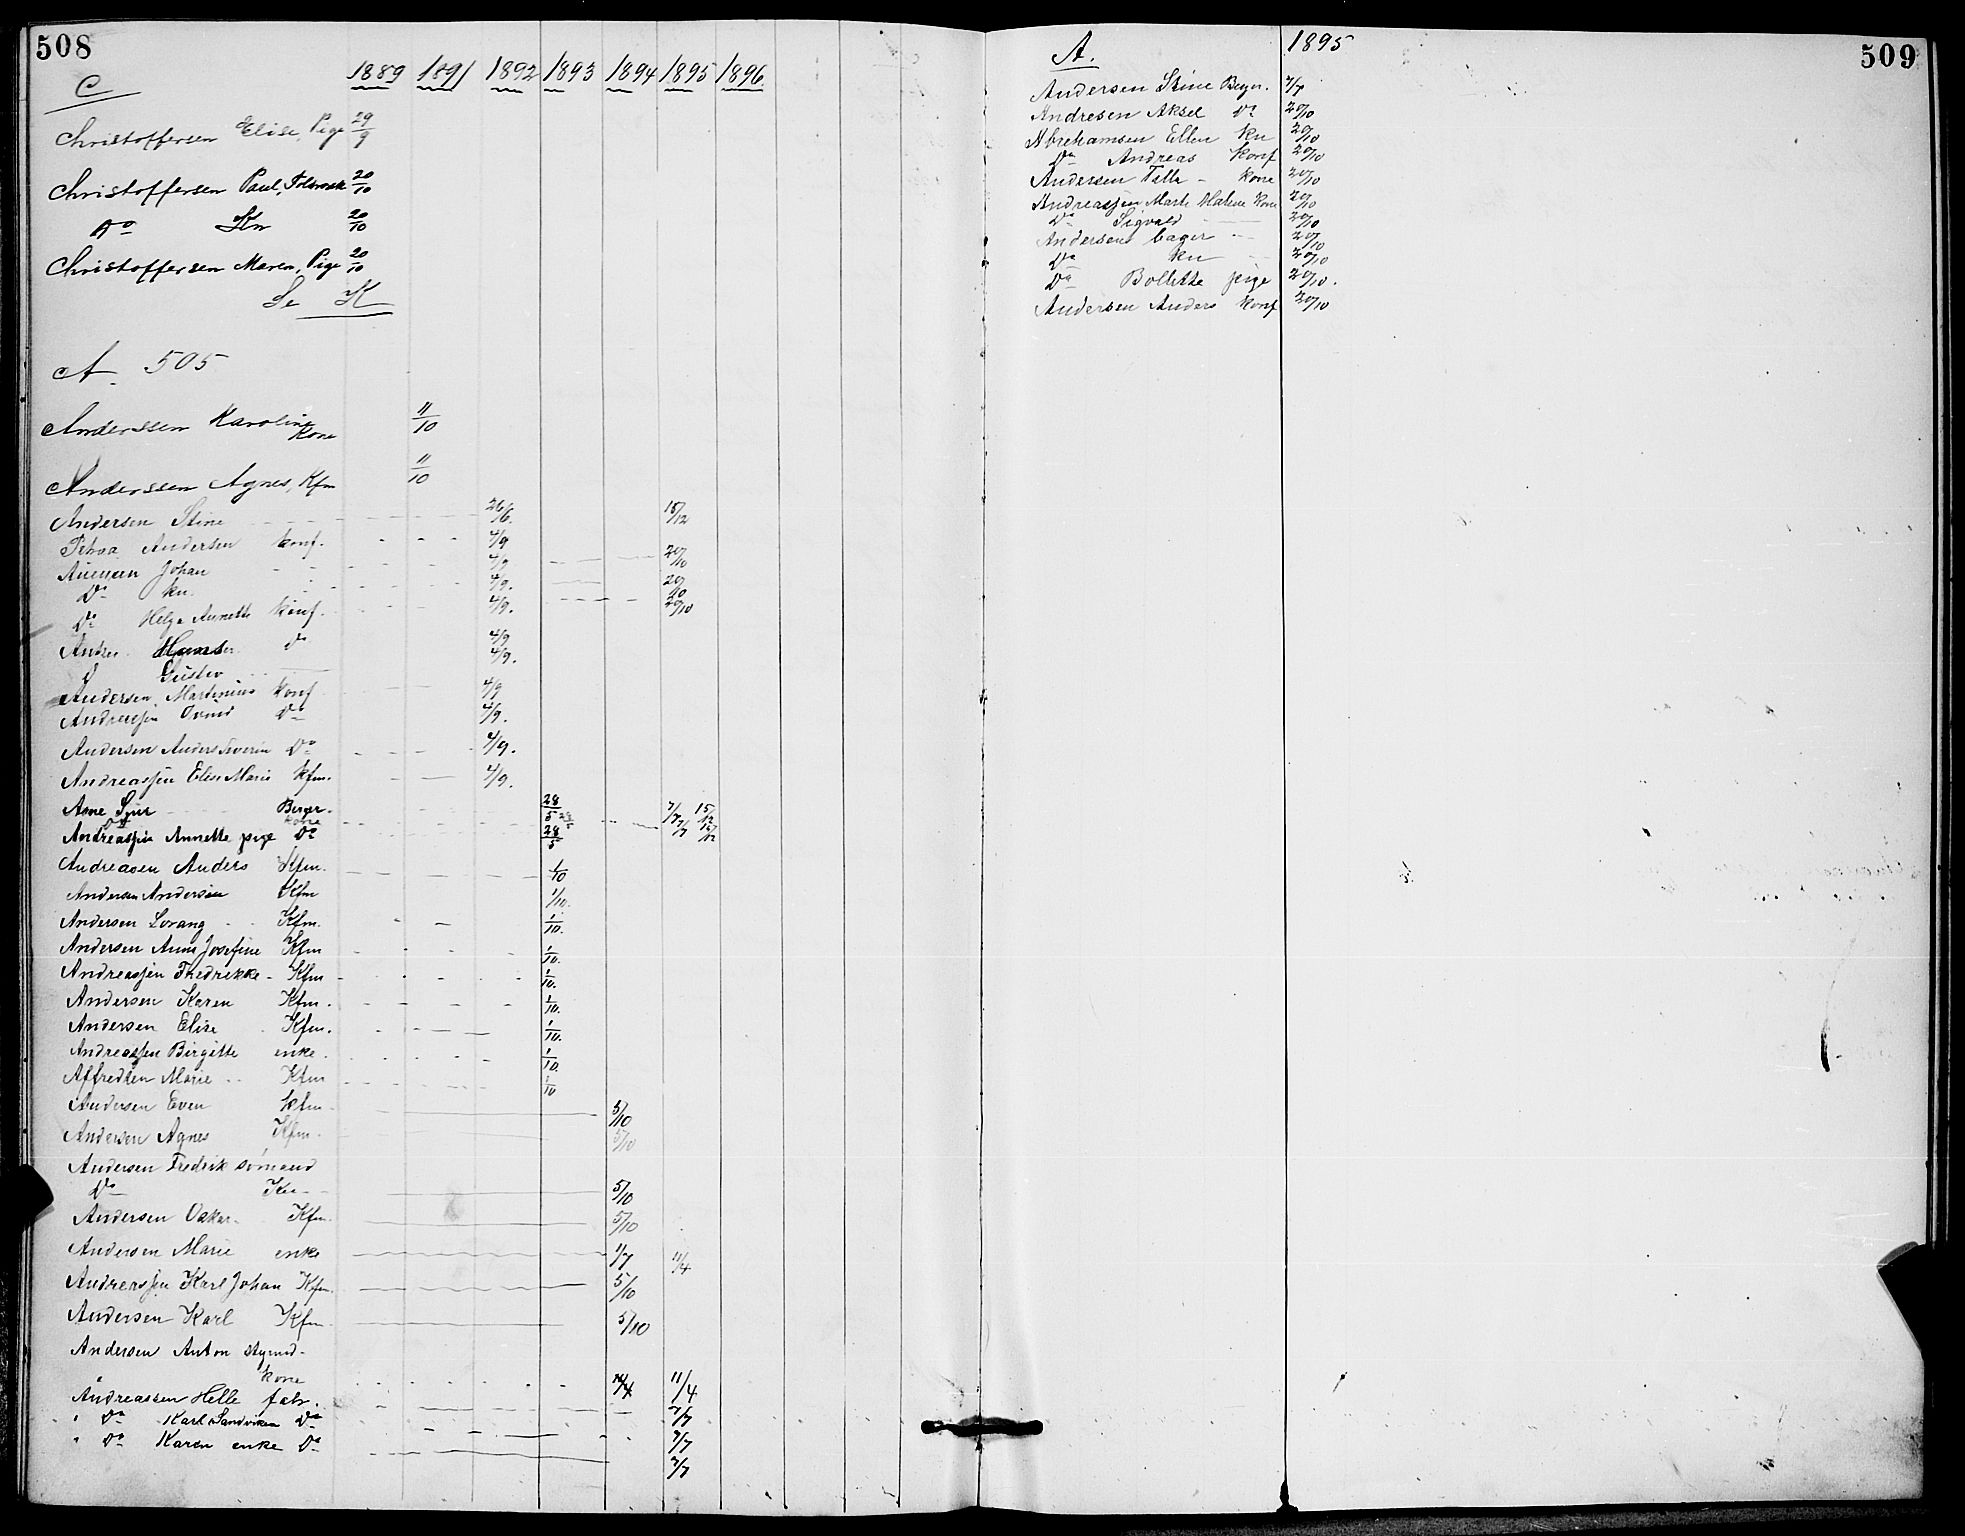 508
C 1889 1891 1892 1893 1894 1895 1896
Christoffersen Elise, Pige 29/9
Christoffersen Paul, 20/10
Do Kn 20/10
Christoffersen Maren, Pige 20/10
Se K
A. 505
Anderssen Karoline Kone 11/10
Anderssen Agnes, Kfm 11/10
Andersen Stine 26/6. 15/12
Andersen konf. 4/9
Johan 4/9 20/10
Do kn. 4/9. 20/10
Do Helga Annette konf. 4/9. 20/10
Do 4/9
Gustav 4/9.
Andersen Martinius konf 4/9
Do 4/9.
Andersen Anders Severin Do 4/9.
Andreassen Elise Marie kfm. 4/9.
Arne 28/5 7/7 15/12
Do kone 28/5 7/7 15/12
Andreassen Annette pige Do 28/5
Andreasen Anders Kfm. 1/10
Andersen Andersine Kfm 1/10.
Andersen Lorang Kfm. 1/10.
Andersen Anna Josefine Kfm 1/10.
Andreassen Fredrikke - Kfm 1/10.
Andersen Karen Kfm. 1/10.
Andersen Elise Kfm. 1/10.
Andreassen Birgitte enke. 1/10.
Alfredsen Marie Kfm 1/10
Andersen Even kfm 5/10
Andersen Agnes Kfm. 5/10
Andersen Fredrik sømand
Do Kn 5/10
Andersen Oskar Kfm. 5/10
Andersen Marie enke 1/7 11/4
Andreassen Karl Johan Kfm. 5/10
Andersen Karl Kfm 5/10
Andersen Anton
" kone 11/4
Andreassen Helle fatr. 7/7
" Do Karl Sandviken Do 7/7
" Do Karen enke Do 7/7
509
A. 1895
Andersen Stine 7/7
Andresen Aksel Do 20/10
Abrehamsen Ellen kn 20/10
Do Andreas konf 20/10
Andersen kone 20/10
Andreassen Marte Malene kone 20/10
Do Sigvald 20/10
Andersen bager 20/10
Do kn 20/10
Do Bollette pige 20/10.
Andersen Anders konf 20/10